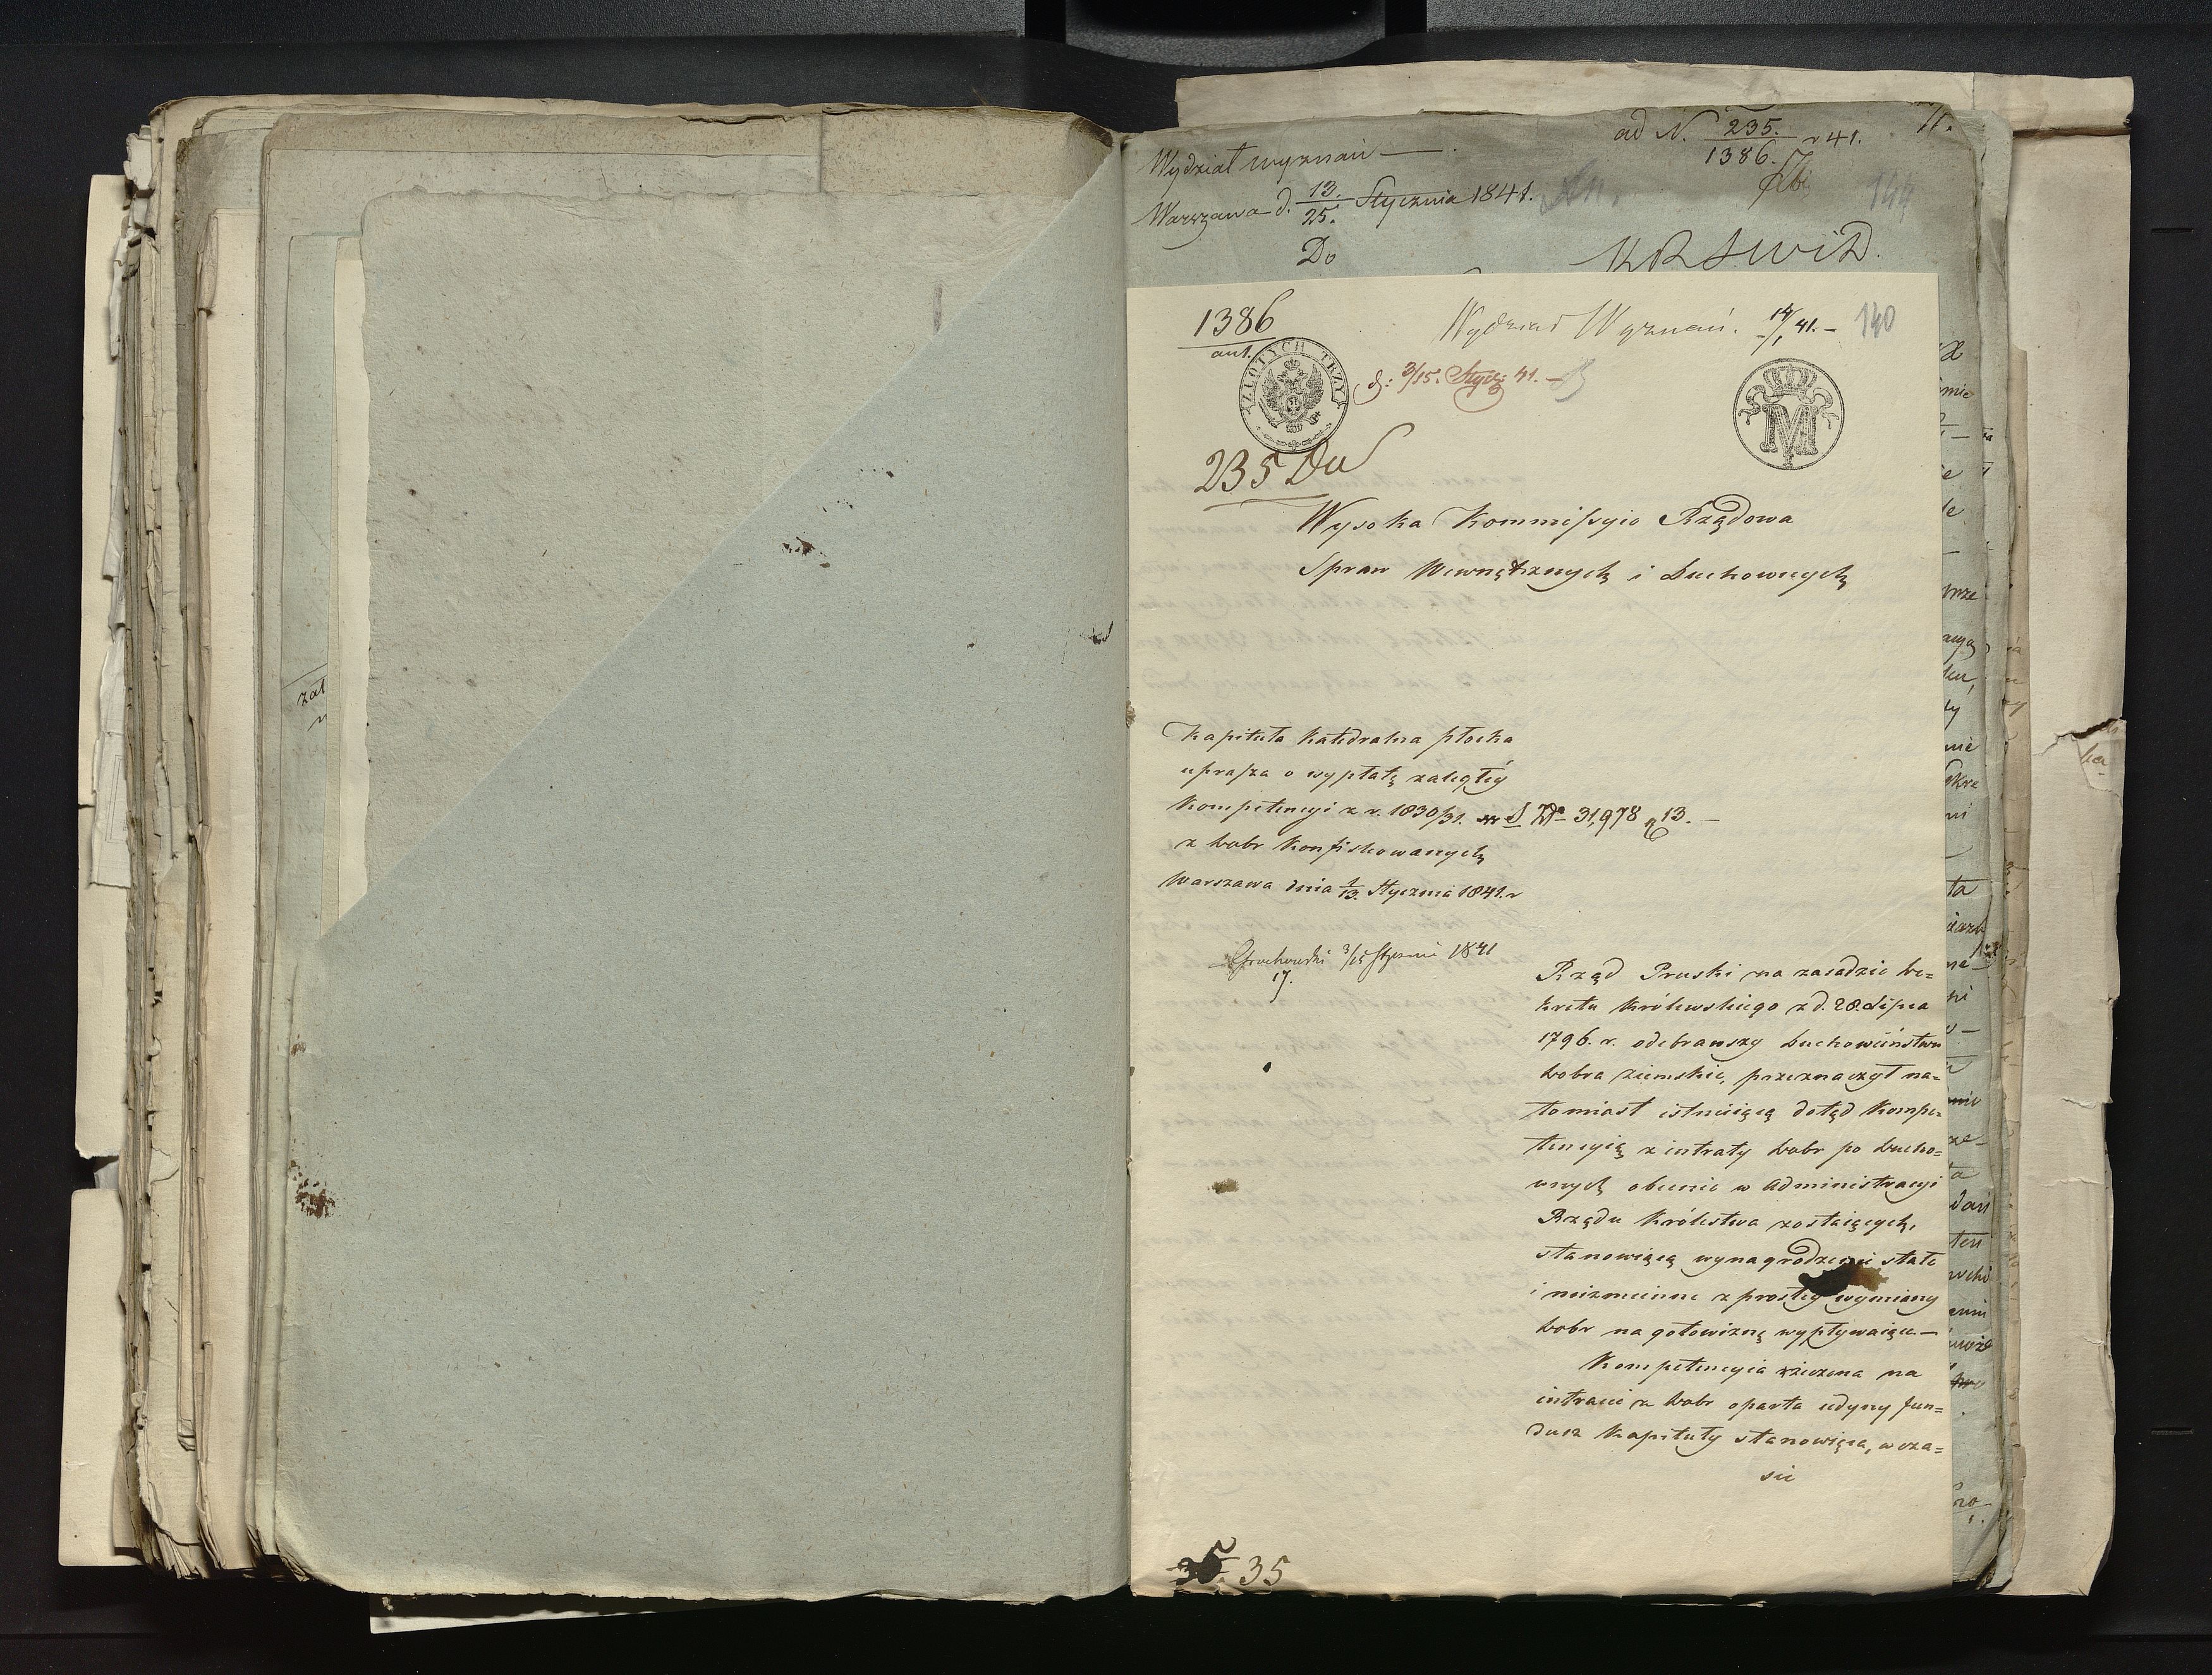 zal
Wydział wyznań —
ad N. 235. / 1386. r 41.
Warszawa d. 13. / 25. Stycznia 1841.
144
Do
KRSWiD.
1386
ant.
Wydział Wyznań. 14/1 41. — 140
ZŁOTYCH TRZY
d: 3/15. Stycz: 41. —
M
235 Du
Wysoka Kommissyio Rządowa
Spraw Wewnętrznych i Duchownych
Kapituła Katedralna płocka
uprasza o wypłatę zaległéy
Kompetencyi z r. 1830/31. w S Zł. 31,978 g 13. —
z dobr Konfiskowanych
Warszawa dnia 1/13. Stycznia 1841. r
Grochowski 3/15 Stycznia 1841
17.
Rząd Pruski na zasadzie de=
kretu Królewskiego z d. 28. Lipca
1796. r. odebrawszy Duchowieństwu
dobra ziemskie, przeznaczył na=
tomiast istnieiącą dotąd Kompe=
tencyią z intraty dobr po ducho=
wnych obecnie w Administracyi
Rządu Królestwa zostaiących,
stanowiącą wynagrodzenie stałe
i niezmienne z prostéy wymiany
dobr na gotowiznę wypływaiące. —
Kompetencyia rzeczona na
intracie z dobr oparta iedyny fun=
dusz Kapituły stanowiąca, w cza=
sie
35